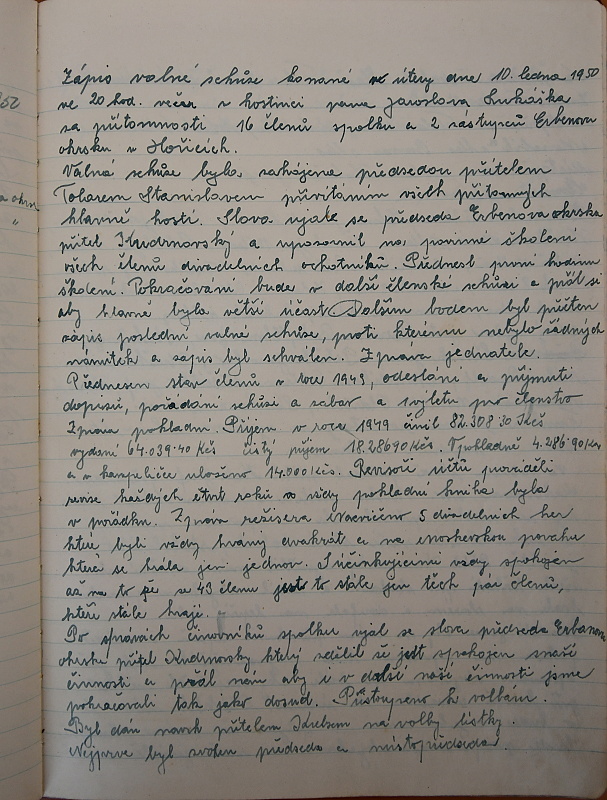 950
a okrs
"
Zápis valné schůze konané ve úterý dne 10. ledna 1950
ve 20 hod. večer v hostinci pana Jaroslava Lukáška
za přítomnosti 16 členů spolku a 2 zástupců Erbenova
okrsku v Hořicích.
Valná schůze byla zahájena předsedou přítelem
Tolarem Stanislavem přivítáním všech přítomných
hlavně hostí. Slova ujal se předseda Erbenova okrska
přítel Kudrnovský a upozornil na povinné školení
všech členů divadelních ochotníků. Přednesl první hodinu
školení. Pokračování bude v další členské schůzi a přál si
aby hlavně byla větší účast. Dalším bodem byl přečten
zápis poslední valné schůze, proti kterému nebylo žádných
námitek a zápis byl schválen. Zpráva jednatele.
Přednesen stav členů v roce 1949, odeslání a přijmutí
dopisů, pořádání schůzí a zábav a výletu pro členstvo
Zpráva pokladní. Příjem v roce 1949 činil 82.308·30 Kčs
vydání 64.039·40 Kčs čistý příjem 18.286·90 Kčs. V pokladně 4.286·90 Kčs
a v kampeličce uloženo 14.000 Kčs. Revisoři účtů prováděli
revise každých čtvrt roků a vždy pokladní kniha byla
v pořádku. Zpráva režisera Nacvičeno 5 divadelních her
které byli vždy hrány dvakrát a na moskevskou povahu
která se hrála jen jednou. S účinkujícími vždy spokojen
až na to že ze 43 členu jest to stále jen těch pár členů,
kteří stále hrají.
Po zprávách činovníků spolku ujal se slova předseda Erbenova
okrsku přítel Kudrnovský který sdělil že jest spokojen s naší
činností a přál nám aby i v další naší činnosti jsme
pokračovali tak jako dosud. Přistoupeno k volbám.
Byl dán návrh přítelem Kubsem na volby lístky.
Nejprve byl zvolen předseda a místopředseda.